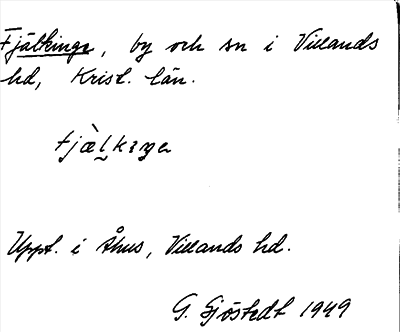 Fjälkinge, by och sn i Villands
hd, Krist. län.
fjæ̀l̬kɪŋə
Uppt. i Åhus, Villands hd.
G. Sjöstedt 1949